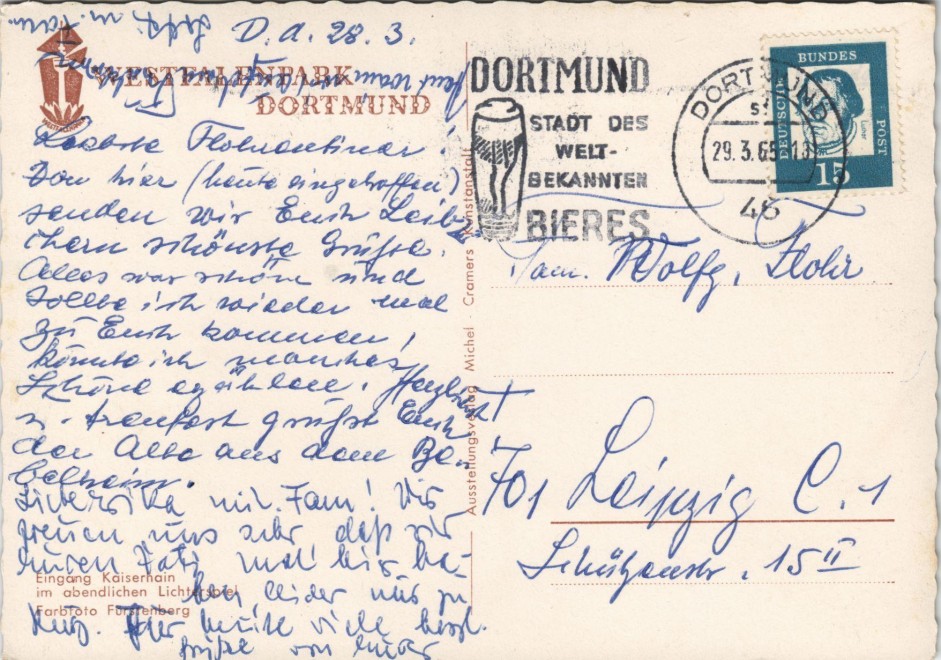 D. d. 28. 3.
WESTFALENPARK
DORTMUND
Liebste Flohrentiner!
Von hier (heute eingetroffen)
senden wir Euch Leib-
chern schönste Grüße.
Alles war schön und
sollte ich wieder mal
zu Euch kommen,
könnte ich manches
Schöne erzählen. Herzlichst
u. treufest grüßt Euch
der Alte aus dem Be-
belheim.
Liebe Erika mit Fam! Wir
freuen uns sehr daß wir
euren Vati mal hier ha-
ben leider nur zu
kurz. Für heute viele herzl.
Grüße von
Eingang Kaiserhain
im abendlichen Lichterspiel
Farbfoto Fürstenberg
Ausstellungsverlag Michel · Cramers Kunstanstalt
DORTMUND
STADT DES
WELT-
BEKANNTEN
BIERES
DORTMUND
29.3.65-18
46
DEUTSCHE
BUNDES
POST
Luther
15
Fam. Wolfg. Flohr
701 Leipzig C. 1
Schützenstr. 15 II